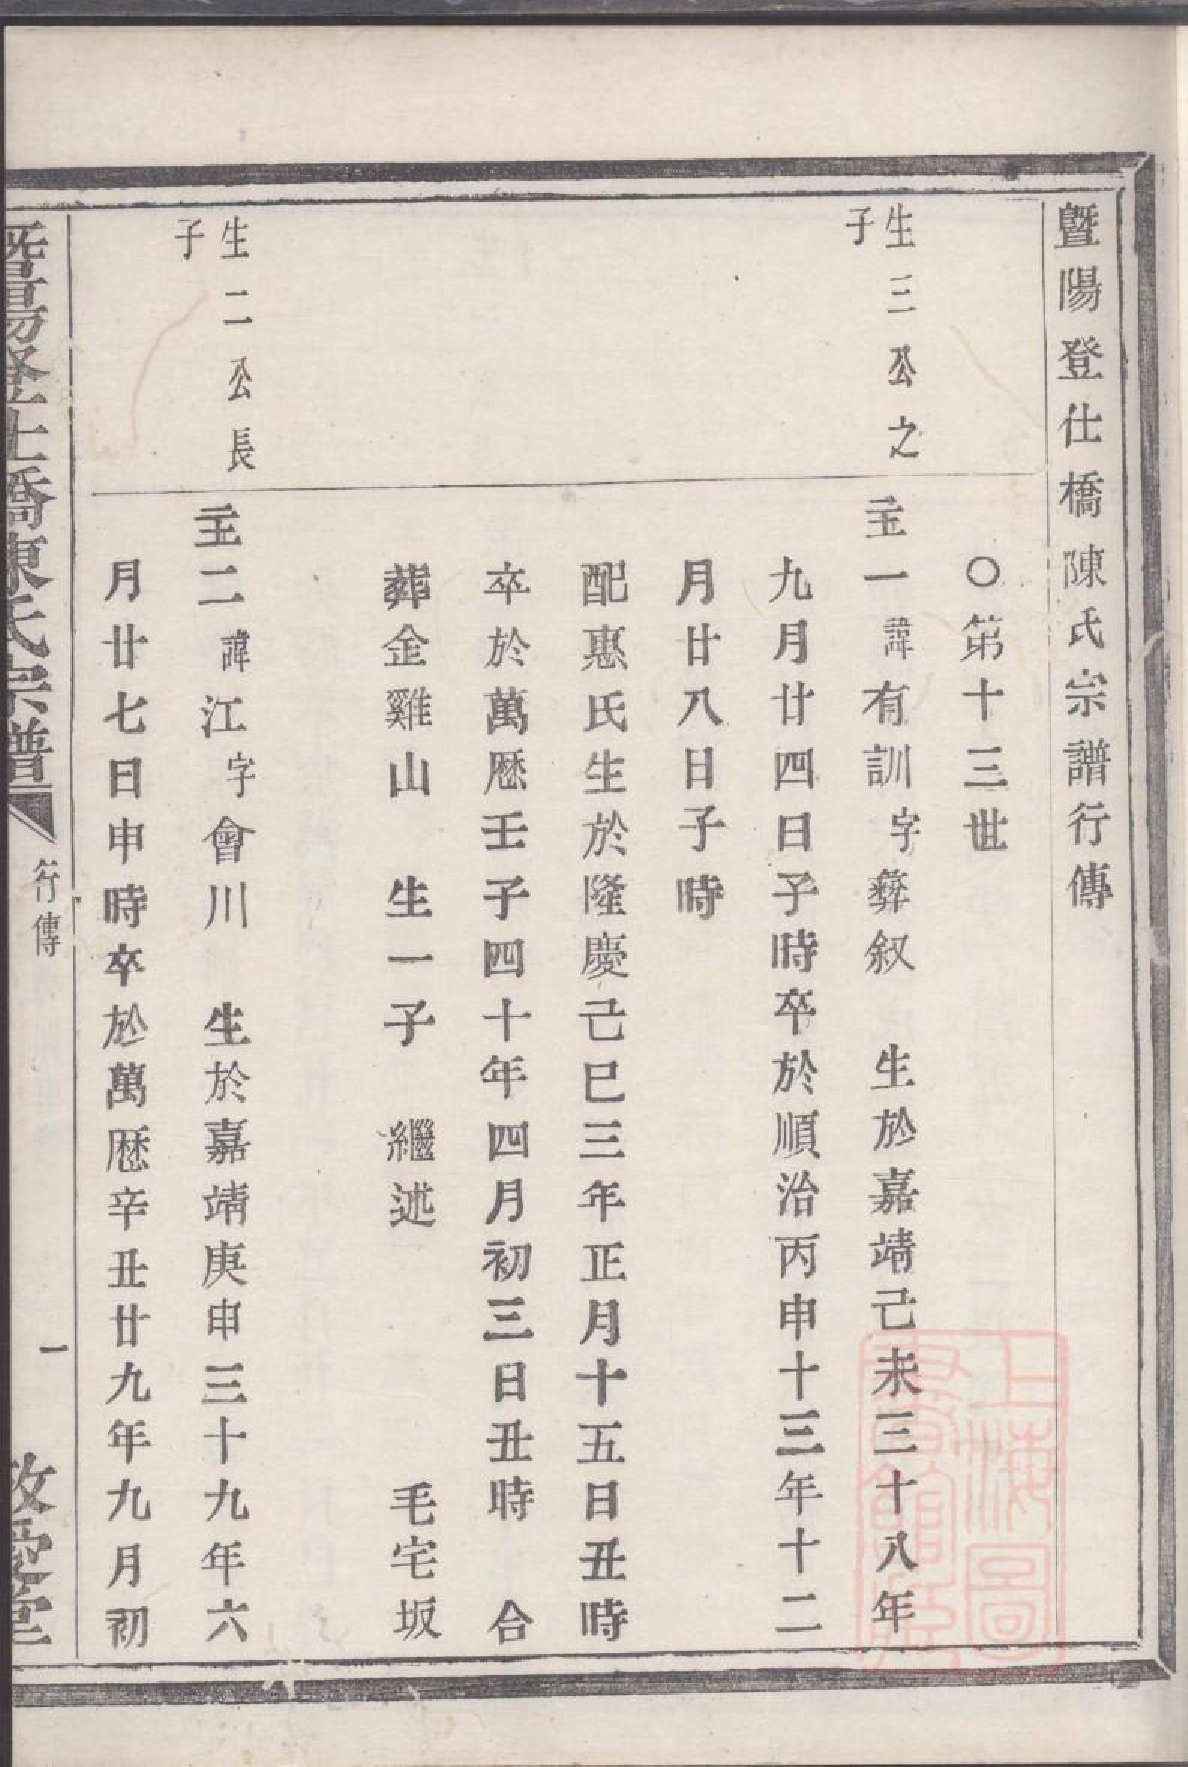 暨陽登仕橋陳氏宗譜行傳
○第十三世
生三公之
子
主一諱有訓字彜叙　生於嘉靖己未三十八年
九月廿四日子時卒於順治丙申十三年十二
月廿八日子時
配惠氏生於隆慶己巳三年正月十五日丑時
卒於萬歷壬子四十年四月初三日丑時　合
葬金雞山　生一子　繼述　毛宅坂
生二公長
子
主二諱江字會川　生於嘉靖庚申三十九年六
月廿七日申時卒於萬歷辛丑廿九年九月初
暨陽登仕橋陳氏宗譜
行傳
一
敬愛堂
上海圖
書館藏